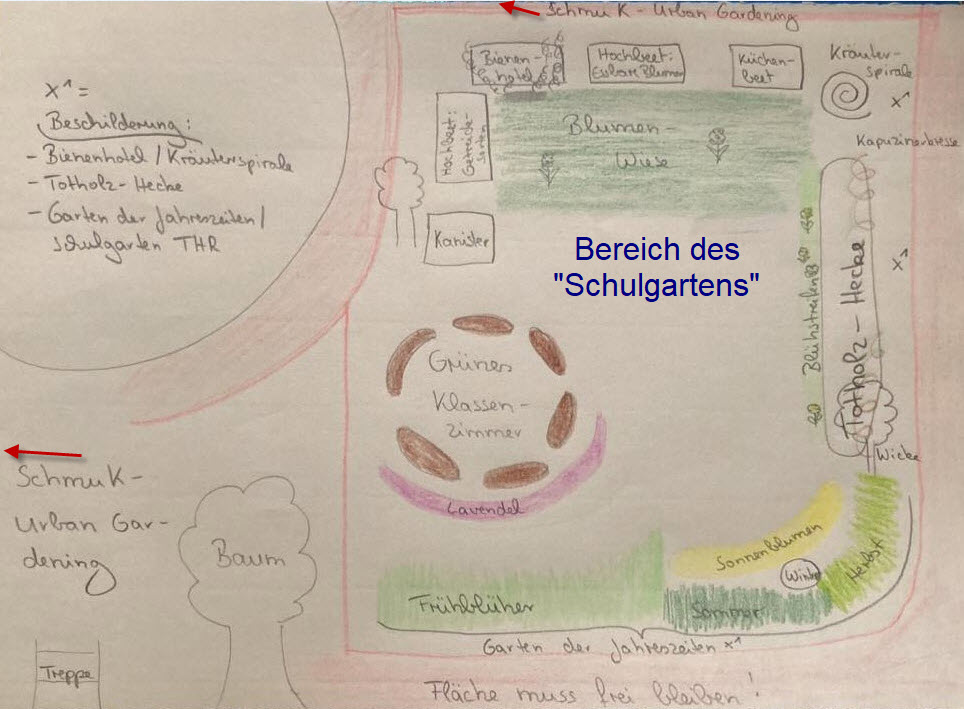 SchmuK - Urban Gardening
x¹ =
Beschilderung:
- Bienenhotel / Kräuterspirale
- Totholz-Hecke
- Garten der Jahreszeiten /
Schulgarten THR
Bienen-
hotel
Hochbeet:
Essbare Blumen
Küchen-
beet
Kräuter-
spirale
x¹
Hochbeet:
Getreide-
sorten
Blumen-
Wiese
Kapuzinerkresse
Kanister
Bereich des
"Schulgartens"
Blühstreifen
Totholz-Hecke
x¹
Grünes
Klassen-
zimmer
Lavendel
Wicke
SchmuK-
Urban Gar-
dening
Baum
Treppe
Sonnenblumen
Winter
Herbst
Frühblüher
Sommer
Garten der Jahreszeiten x¹
Fläche muss frei bleiben!